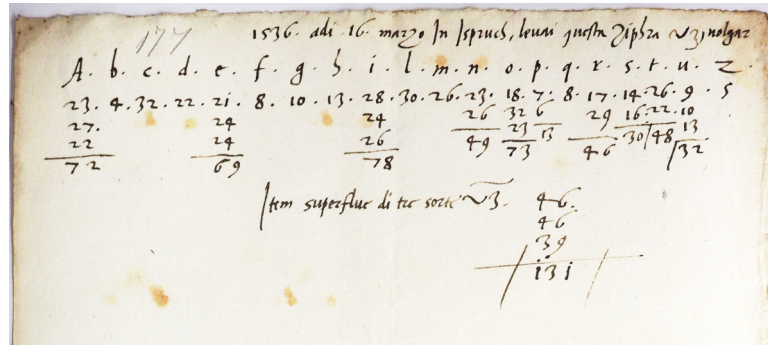 177
1536. adi .16. marzo In Ispruch, levai questa Ziphra vz, volgar
A. b. c. d. e. f. g. h. i. l. m. n. o. p. q. r. s. t. u. z.
23. 4. 32. 22. 21. 8. 10. 13. 28. 30. 26. 23. 18. 7. 8. 17. 14. 26. 9. 5
27. 24 24 26 32 6 29 16. 22. 10
22 24 26 49 23 13 46 30 48 13
72 69 78 73 32
Item superflue di tre sorte vz. 46.
46
39
131